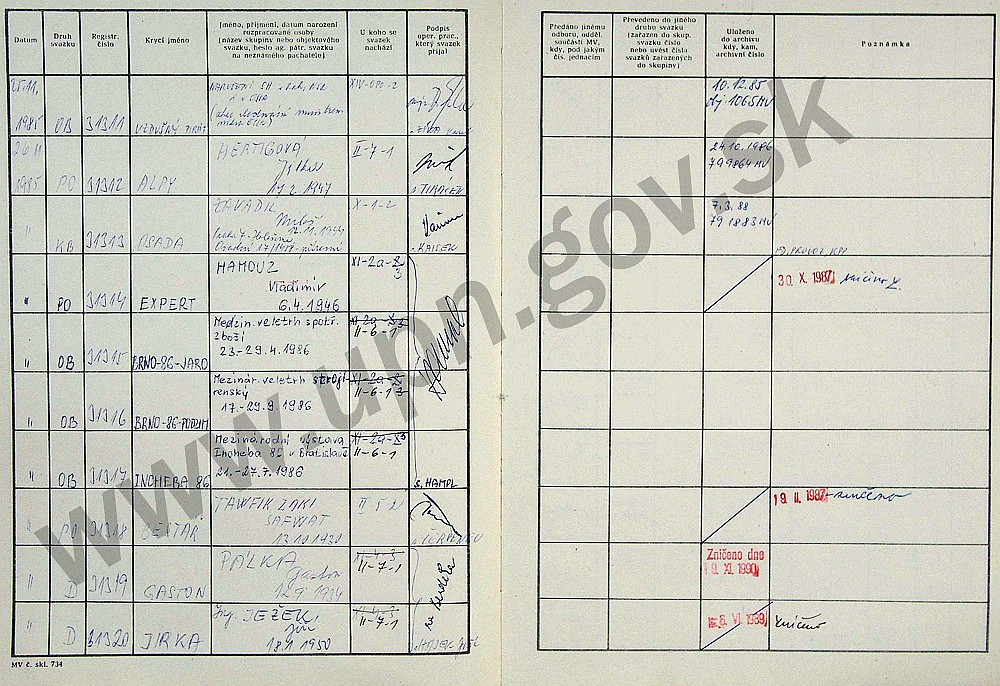 Datum
Druh
svazku
Registr.
číslo
Krycí jméno
Jméno, příjmení, datum narození
rozpracované osoby
(název skupiny nebo objektového
svazku, heslo ag. pátr. svazku
na neznámého pachatele)
U koho se
svazek
nachází
Podpis
oper. prac.,
který svazek
přijal
Předáno jinému
odboru, odděl.
součásti MV,
kdy, pod jakým
čís. jednacím
Převedeno do jiného
druhu svazku
(zařazen do skup.
svazku číslo
nebo uvést čísla
svazků zařazených
do skupiny)
Uloženo
do archivu
kdy, kam,
archivní číslo
Poznámka
25.11.
1985 OB 31311 VZDUŠNÝ PIRÁT
XIV-OPO-2
10.12.85
obj 1065 MV
26.11
1985 PO 31312 ALPY
HERTIGOVÁ
17.2.1947
II-7-1
s. TIRÁČEK
24.10.1986
799864 MV
" KB 31313 OSADA
ZAVADIL
Miloš
12.11.1944
X-1-2
s. KAISER
7.3.88
791883 MV
" PO 31314 EXPERT
HAMOUZ
Vladimír
6.4.1946
XI-2a-8
3
30. X. 1987 zničeno
" OB 31315 BRNO-86-JARO
Mezin. veletrh spotř.
zboží
23-29.4.1986
XI-2a-83
II-6-1
" OB 31316 BRNO-86-PODZIM
Mezinár. veletrh strojí
renský
17.-29.9.1986
XI-2a-8
II-6-1 3
" OB 31317 INCHEBA 86
Mezinárodní výstava
Incheba 86 v Bratislavě
21.-27.7.1986
XI-2a-83
II-6-1
s. HAMPL
" PO 31318 ČESTÁŘ
TAWFIK ZAKI
SAFWAT
13.10.1930
II-5-2
19. II. 1987 zničeno
" D 31319 GASTON
PÁLKA
Gaston
12.9.1934
II-7-1
Zničeno dne
19. XI. 1990
" D 31320 JIRKA
Ing. JEŽEK
Jiří
18.1.1950
II-7-1
6. VI. 1989
zničeno
MV č. skl. 734
www.upn.gov.sk